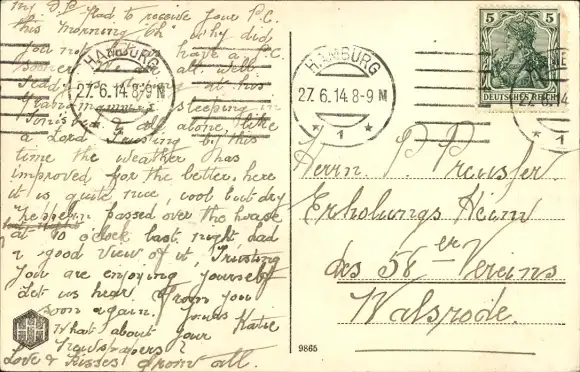 My D.P. Glad to receive your P.C.
this morning "Oh" why did
you not have a P.C.
sooner all well
at his
sleeping in
& all alone, like
a Lord. Trusting by this
time the weather has
improved for the better, here
it is quite nice, cool, but dry
Zeppelin passed over the house
at 10 o'clock last night, had
a good view of it. Trusting
you are enjoying yourself
Let us hear from you
soon again. Yours
Katie
What about your
Newspapers?
Love & Kisses from all.
HAMBURG
27.6.14.8-9 M
* 1 *
HAMBURG
27.6.14.8-9 M
* 1 *
5 5
DEUTSCHES REICH
Herrn P. Preusser
Erholungs Heim
des 58er Vereins
Walsrode.
9865